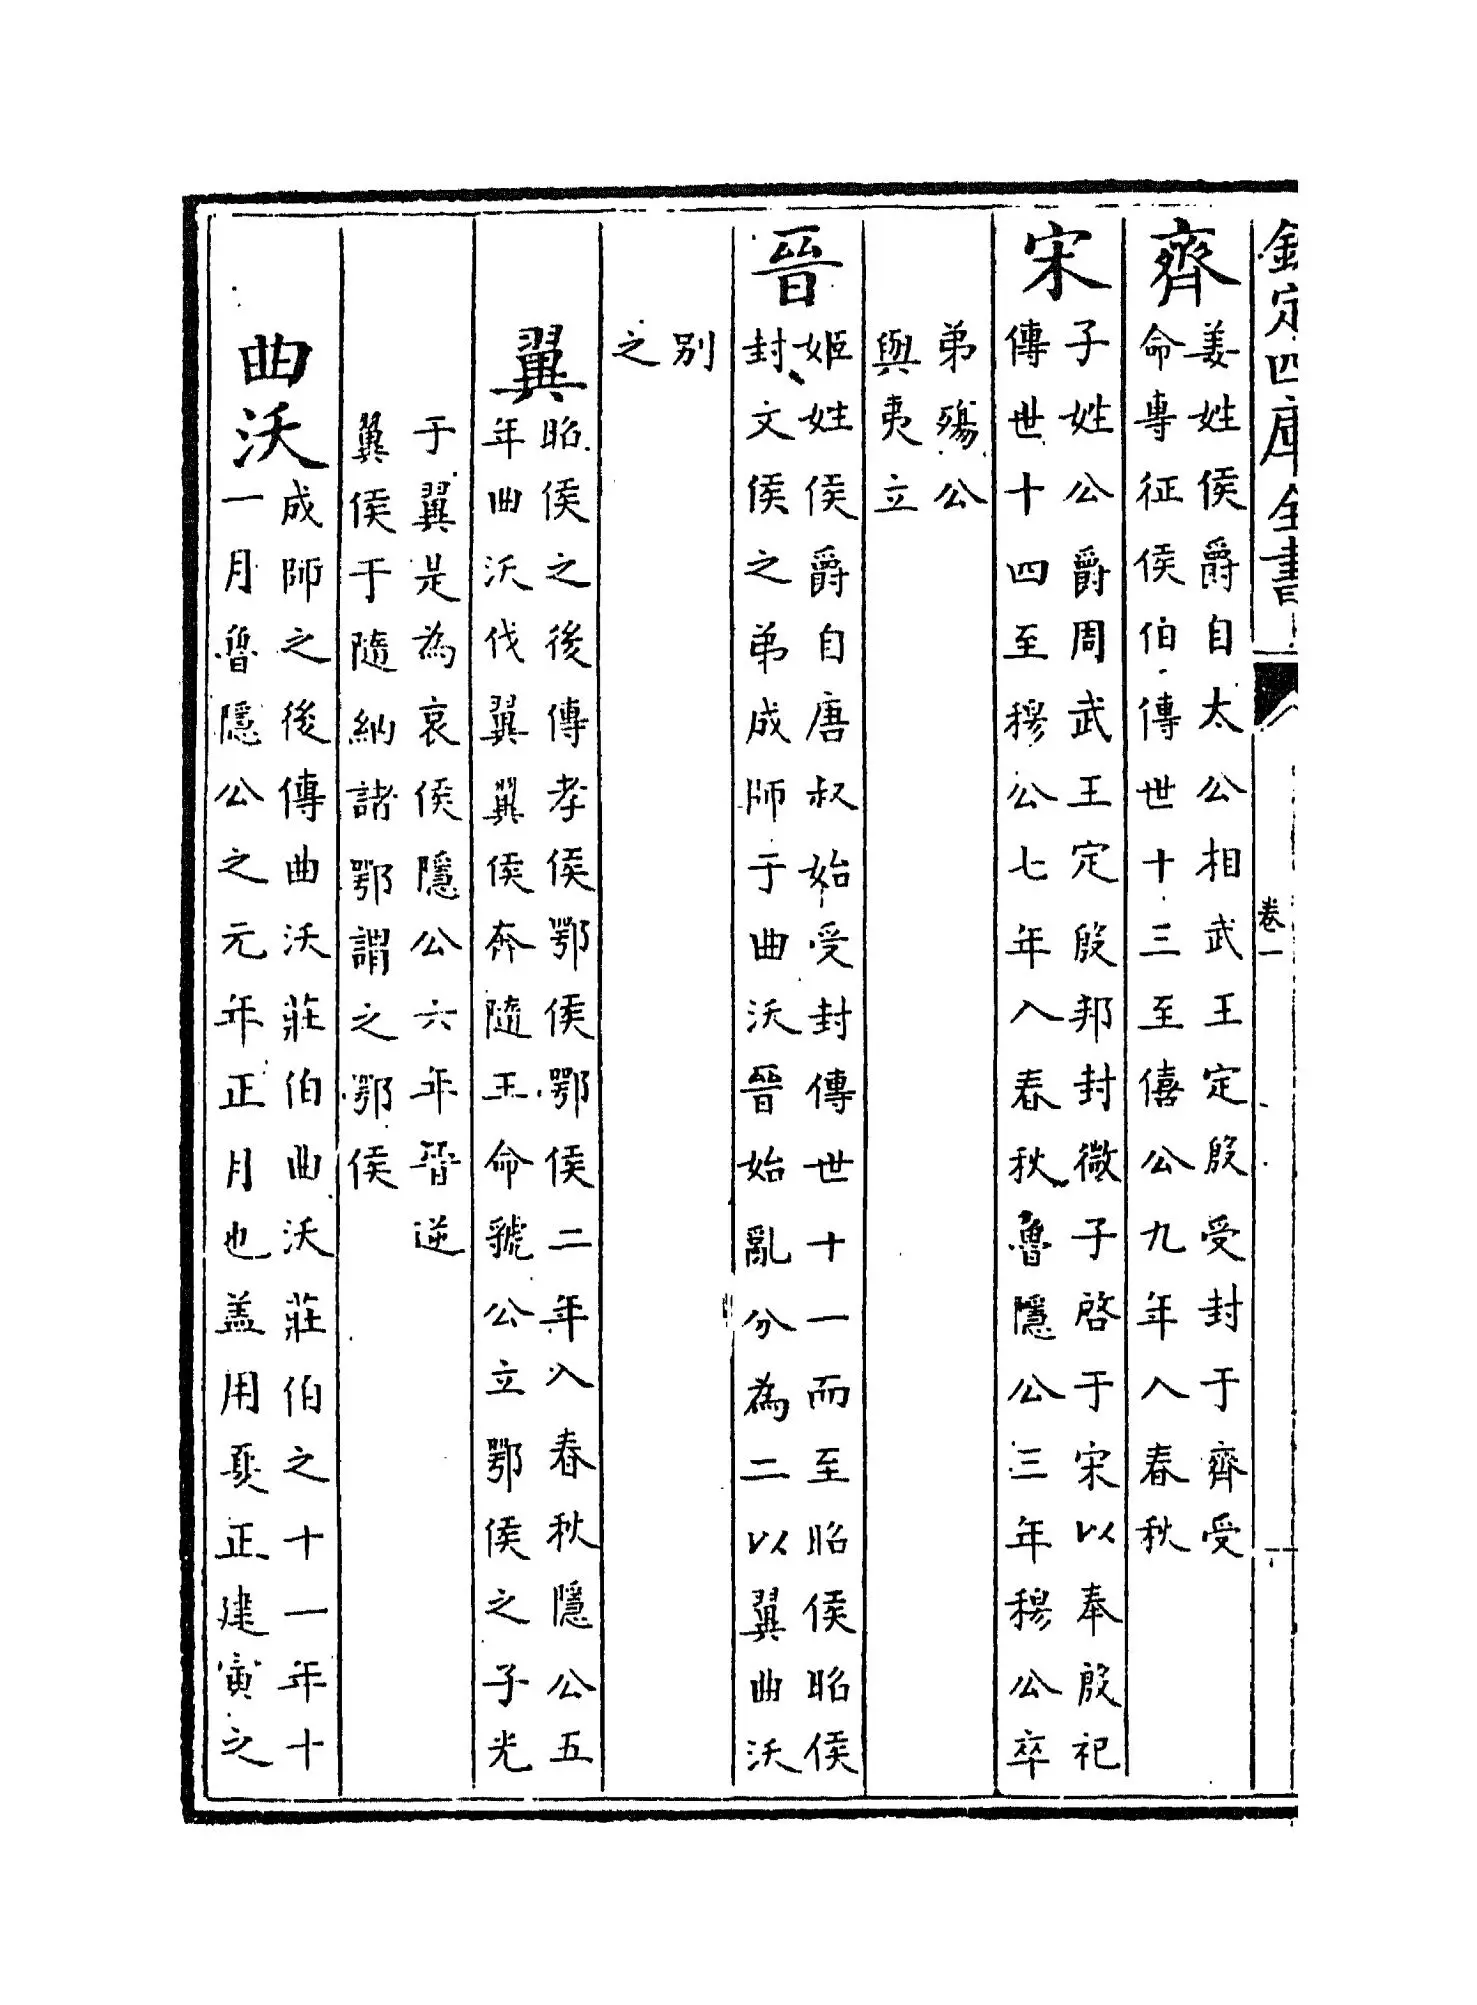 欽定四庫全書
卷一
齊
姜姓侯爵自太公相武王定殷受封于齊受
命專征侯伯傳世十三至僖公九年入春秋
宋
子姓公爵周武王定殷邦封微子啓于宋以奉殷祀
傳世十四至穆公七年入春秋魯隱公三年穆公卒
弟殤公
與夷立
晉
姬姓侯爵自唐叔始受封傳世十一而至昭侯昭侯
封文侯之弟成師于曲沃晉始亂分為二以翼曲沃
别
之
翼
昭侯之後傳孝侯鄂侯鄂侯二年入春秋隱公五
年曲沃伐翼翼侯奔隨王命虢公立鄂侯之子光
于翼是為哀侯隱公六年晉逆
翼侯于隨納諸鄂謂之鄂侯
曲沃
成師之後傳曲沃莊伯曲沃莊伯之十一年十
一月魯隱公之元年正月也盖用夏正建寅之